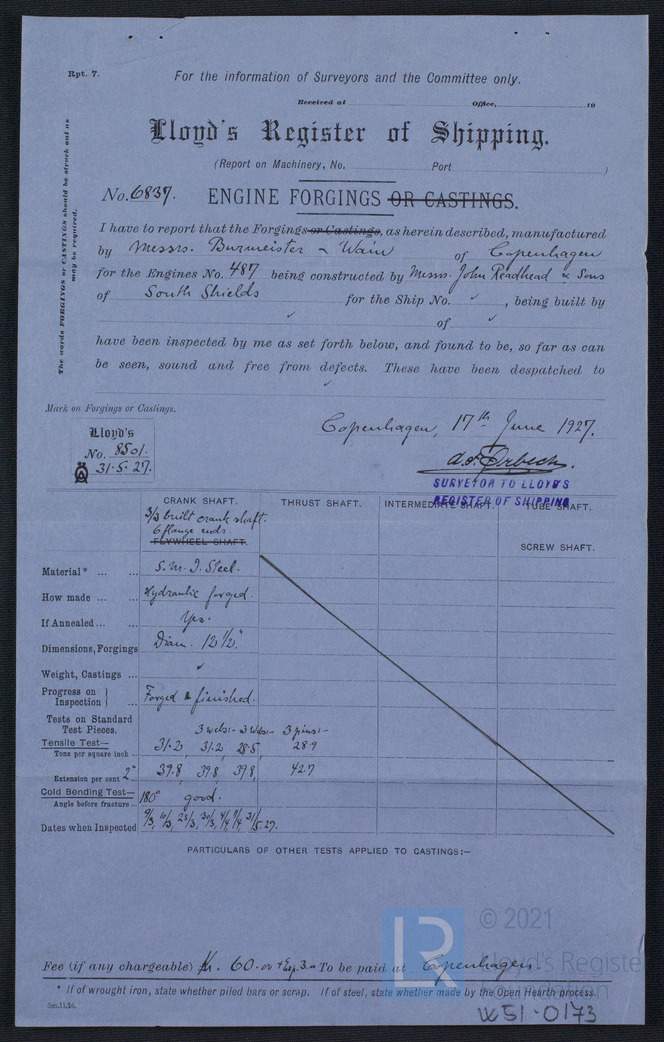 Rpt. 7.
For the information of Surveyors and the Committee only.
Received at Office, 19
Lloyd's Register of Shipping.
(Report on Machinery, No. Port )
The words FORGINGS or CASTINGS should be struck out as
may be required.
No. 6837. ENGINE FORGINGS OR CASTINGS.
I have to report that the Forgings or Castings, as herein described, manufactured
by Messrs. Burmeister & Wain of Copenhagen
for the Engines No. 487 being constructed by Messrs. John Readhead & Sons
of South Shields for the Ship No. ✓, being built by
✓ of ✓
have been inspected by me as set forth below, and found to be, so far as can
be seen, sound and free from defects. These have been despatched to
✓
Mark on Forgings or Castings.
Copenhagen, 17th June 1927.
Lloyd's
No. 8501.
31.5.27.
SURVEYOR TO LLOYD'S
REGISTER OF SHIPPING
CRANK SHAFT. THRUST SHAFT. INTERMEDIATE SHAFT. TUBE SHAFT.
built crank shaft.
6 flange ends
FLYWHEEL SHAFT. SCREW SHAFT.
Material* ... ... S. M. I. Steel.
How made ... ... Hydraulic forged.
If Annealed ... ... Yes.
Dimensions, Forgings Diam. 12½"
Weight, Castings ... ✓
Progress on Inspection } Forged & finished.
Tests on Standard
Test Pieces. 3 webs:- 3 webs:- 3 pins:-
Tensile Test— 31.2 31.2 28.5 28.9
Tons per square inch ...
Extension per cent 2" 39.8 39.8 39.8 42.7
Cold Bending Test— 180° good.
Angle before fracture ...
Dates when Inspected
PARTICULARS OF OTHER TESTS APPLIED TO CASTINGS:—
© 2021
Lloyd's Register
Foundation
LR
Fee (if any chargeable) Kr. 60.00 + Exp. 3.- To be paid at Copenhagen.
* If of wrought iron, state whether piled bars or scrap. If of steel, state whether made by the Open Hearth process.
W51-0173